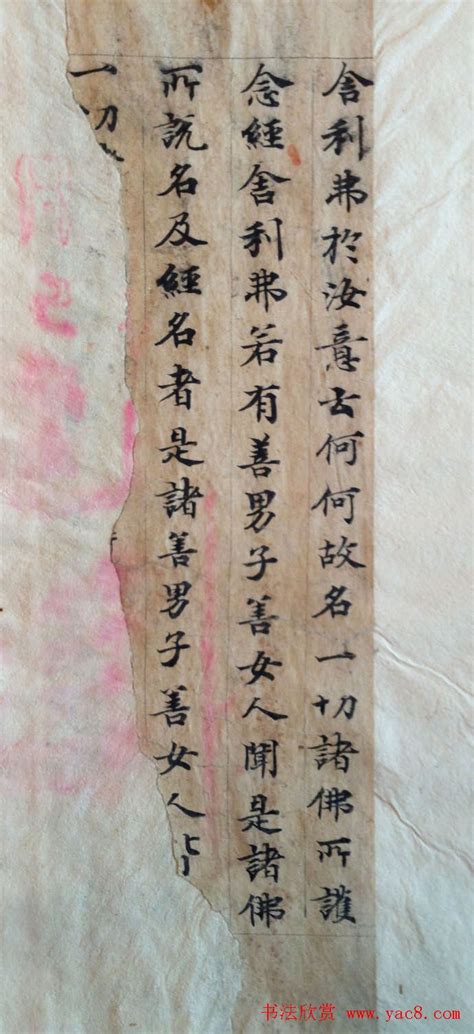 舍利弗於汝意云何何故名一切諸佛所護
念經舍利弗若有善男子善女人聞是諸佛
所說名及經名者是諸善男子善女人
一切
书法欣赏 www.yac8.com